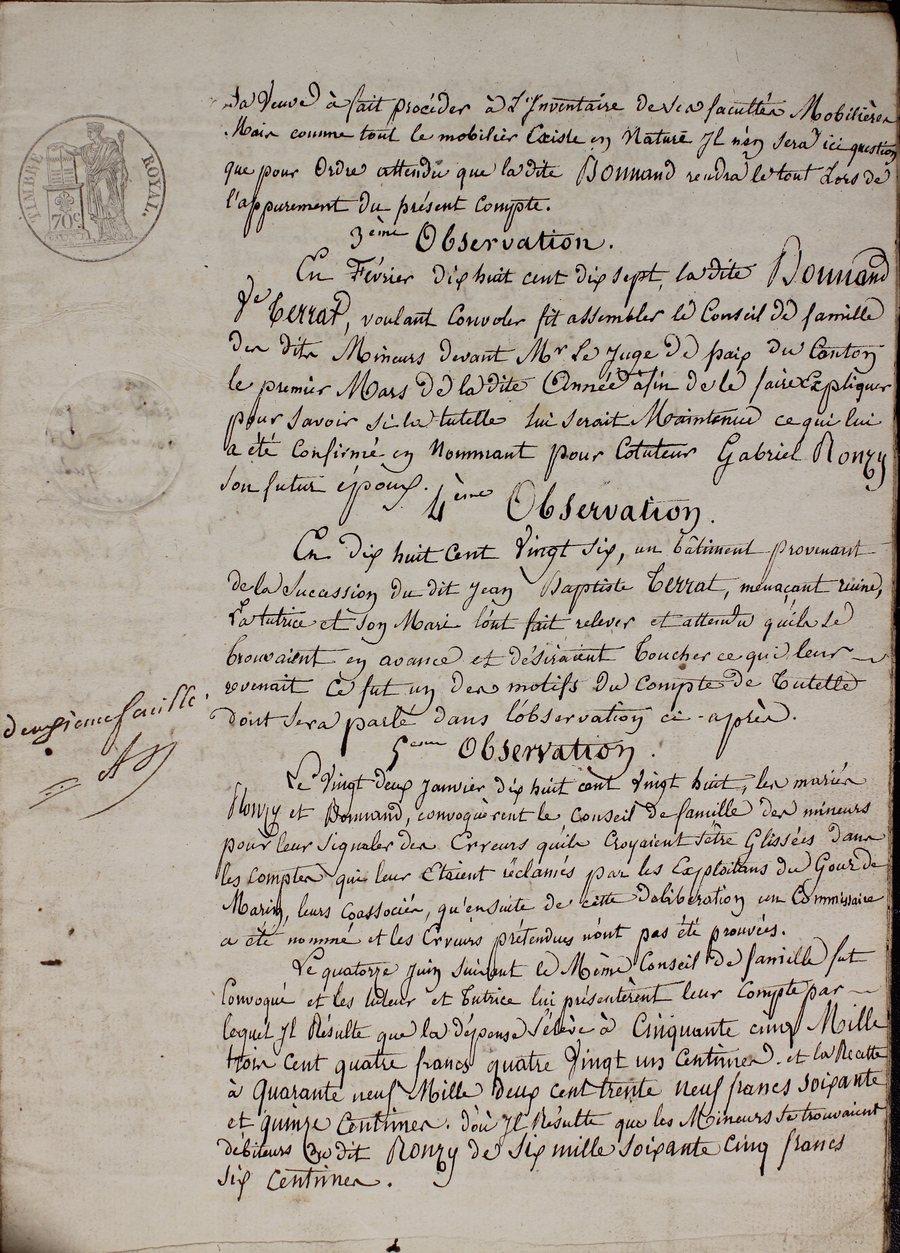 TIMBRE ROYAL.
70c
Sa Veuve à fait procéder à L'Inventaire de ses facultés Mobilières
Mais comme tout le mobilier Existe en Nature Il n'en sera ici question
que pour Ordre attendu que la dite Bonnand rendra le tout Lors de
l'appurement du présent Compte.
3ème Observation.
En Février dix huit cent dix sept, la dite Bonnand
Ve Terrat, voulant Convoler fit assembler le Conseil de famille
des dits Mineurs devant Mr Le Juge de paix du Canton
le premier Mars de la dite Année afin de le faire Expliquer
pour savoir si la tutelle lui serait Maintenue ce qui lui
a été Confirmé en Nommant pour Cotuteur Gabriel Ronzy
son futur époux.
4ème Observation.
En dix huit Cent Vingt Six, un bâtiment provenant
de la Sucession du dit Jean Baptiste Terrat, menaçant ruine,
La tutrice et Son Mari l'ont fait relever et attendu qu'ils Se
trouvaient en avance et désiraient Toucher ce qui leur
revenait Ce fut un des motifs du Compte de Tutelle
dont Sera parlé dans l'observation ci-après.
deuxieme feuille.
5eme Observation.
Le Vingt deux Janvier dix huit cent Vingt huit, les mariés
Ronzy et Bonnand, convoquèrent le Conseil de famille des mineurs
pour leur Signaler des Erreurs qu'ils Croyaient s'être Glissées dans
les Comptes qui leur Etaient réclamés par les Exploitans du Gour de
Marin, leurs Coassociés, qu'ensuite de cette délibération un Commissaire
a été nommé et les Erreurs prétendues n'ont pas été prouvées.
Le quatorze Juin Suivant le Même Conseil de famille fut
Convoqué et les tuteur et Tutrice lui présentèrent leur Compte par
lequel Il Résulte que la dépense S'élève à Cinquante cinq Mille
trois cent quatre francs quatre Vingt un Centimes. et la Recette
à Quarante neuf Mille deux cent trente neuf francs soixante
et quinze Centimes. d'où Il Résulte que les Mineurs Se trouvaient
débiteurs du dit Ronzy de Six mille soixante cinq francs
Six Centimes.